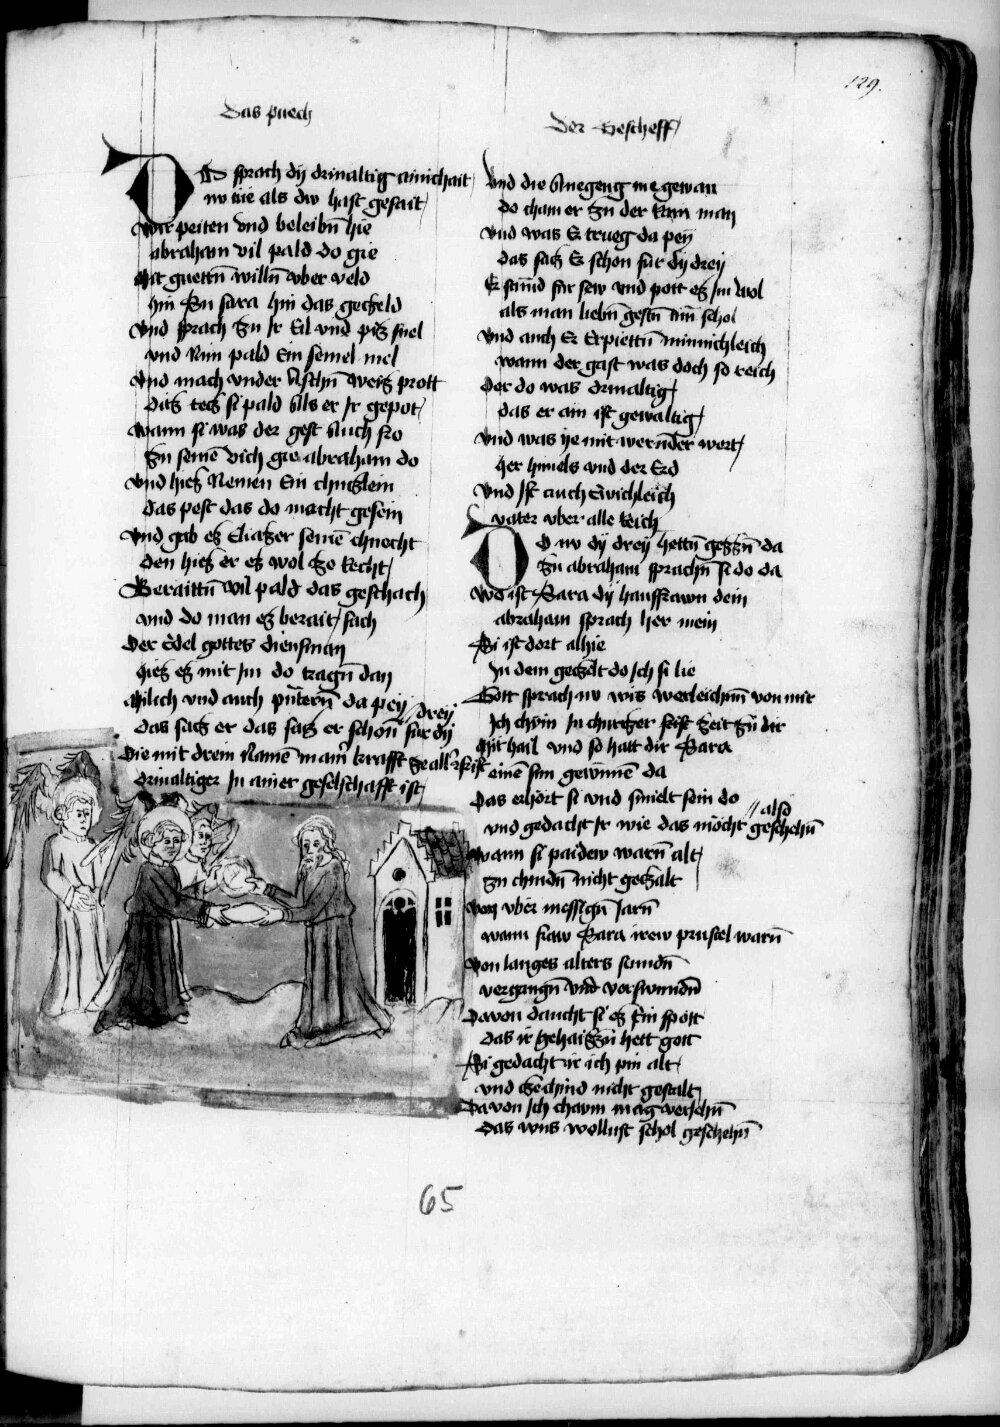 129.
Das puech
Der Gescheff
Do sprach dy drinaltig ainichait
nv tue als dw hast gesait
Wir peiten vnd beleibn̄ hie
abraham vil pald do gie
Mit guettn̄ willn̄ vber veld
hin zu sara hin das geczeld
Vnd sprach zu Ir Eil vnd piß snel
vnd Nim pald Ein semel mel
Vnd mach vnder Aschn̄ weiß prott
Ditz tet si pald Als er Ir gepot
Wann si was der gest Auch fro
zu seinē vich gie abraham do
Vnd hieß Nemen Ein chitzlein
das pest das do macht gesein
Vnd gab eß Eliaßer seinē chnecht
den hieß er eß wol zo Recht
Beraittn̄ vil pald das geschach
vnd do man eß berait sach
Der Edel gottes dienstman
hieß eß mit Im do tragn̄ dan
Milich vnd auch puttern̄ da pey
das saß er das saß er schon fur dy drey
Die mit drein Namē in ainer krafft ze aller frist
drinaltiger In ainer geselschafft ist
Vnd die Anegeng nie gewan
do cham er zu der kun man
Vnd was Er trueg da pey
das saß Er schon fur dy drey
Er stuend fur sew vnd pott eß Im wol
als man liebn̄ gestn̄ tun schol
Vnd auch Er Erpiettn̄ minnichleich
wann der gast was doch so reich
Der do was drinaltig
das er ain ist gewaltig
Vnd was ye mit wernder wert
her himels vnd der Erd
Vnd Ist auch Ewichleich
vater vber alle Reich
Do nv dy drey hettn̄ geßßn̄ da
zu abraham sprachn̄ si do da
Wo ist Sara dy hausfrawn dein
abraham sprach her mein
Si ist dort alhie
In dem geczelt do Ich si lie
Gott sprach nv wis werleichn̄ von mir
Ich chum In churtzer frist zeit zu dir
Mit hail vnd so hatt dir Sara
einē sun gewunnē da
Das erhort si vnd smielt sein do
vnd gedacht Ir wie das mocht also geschehn̄
Wann si paidew warn̄ alt
zu chindn̄ nicht geczalt
Von vber messign̄ Iarn̄
wann fraw Sara irew prustel warn̄
Von langes alters stundn̄
vergangn̄ vnd verswundn̄
Davon daucht si eß Ein spott
das ir gehaißßn̄ hett gott
Si gedacht ir ich pin alt
vnd ze chind nicht gestalt
Davon Ich chawm mag versehn̄
das vns wollust schol geschehn̄
65